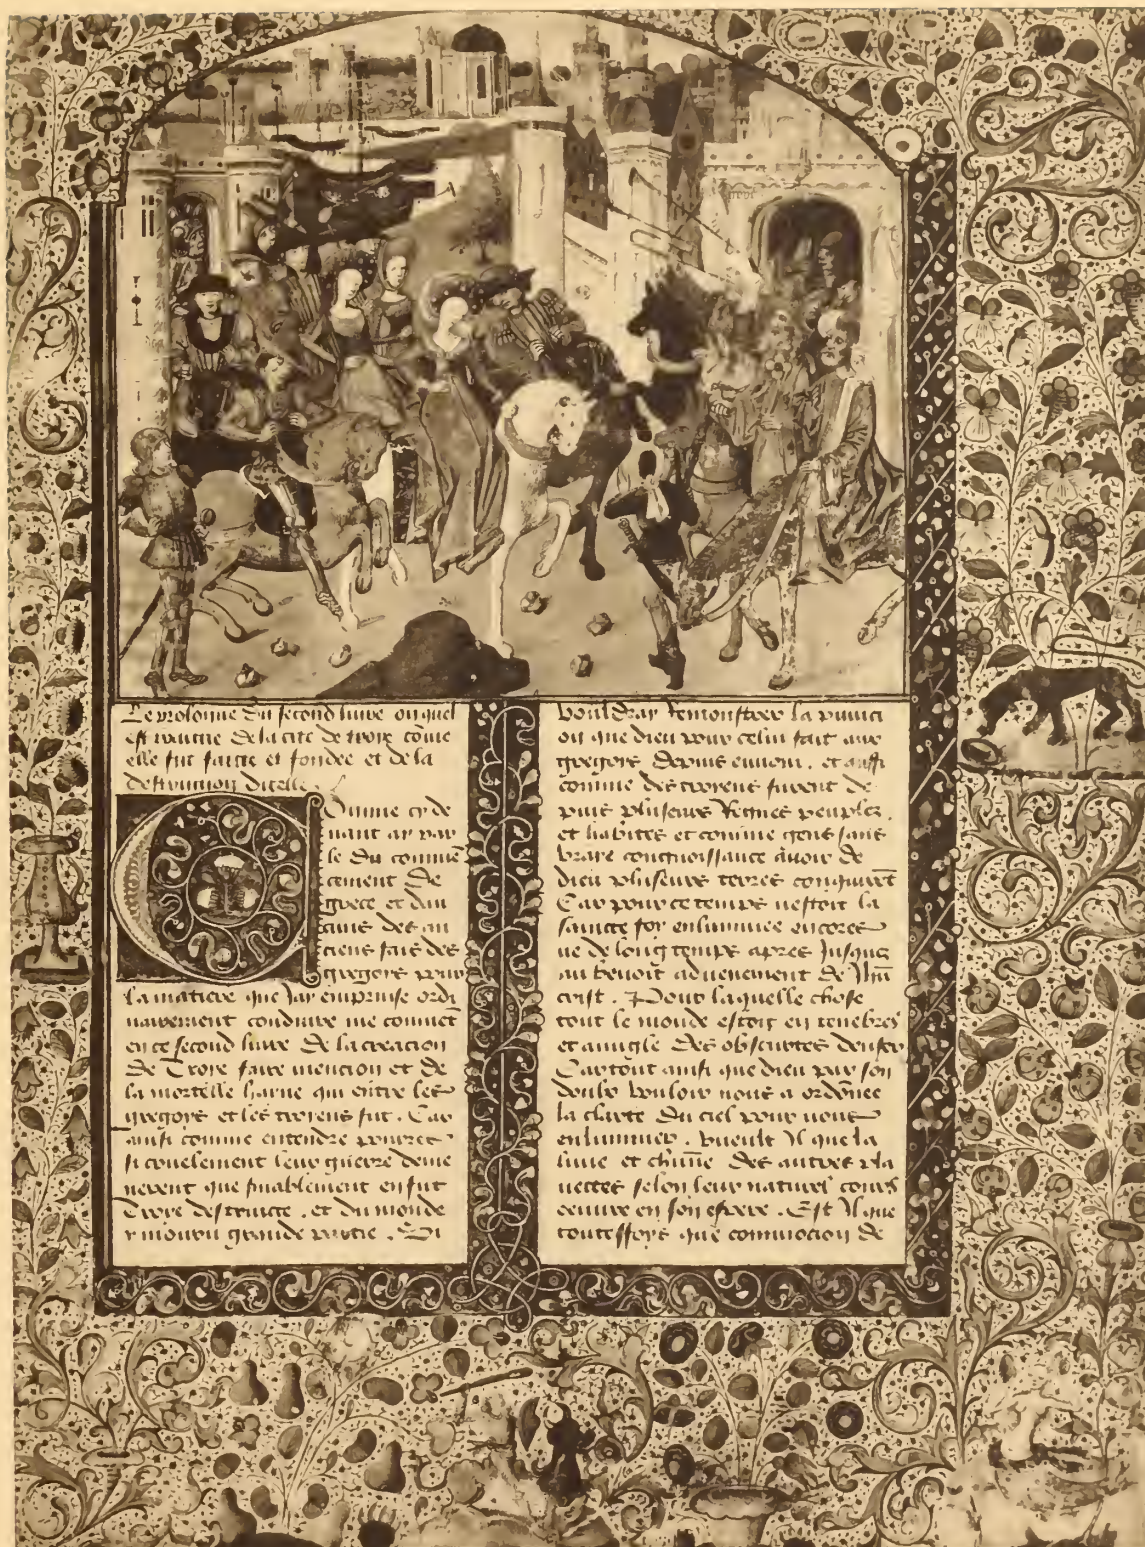 Le prologue du second livre ou quel
est traictie de la cite de troye come
elle fut faicte et fondee et de la
destruction dicelle
Comme cy de
uant ay par
le du comme
cement de
grece et dau
cuns des an
ciens fais des
gregois pour
la matiere que Jay emprinse ordi
nairement conduire me commet
en ce second livre de la creacion
de Troye faire mencion et de
la mortelle hayne qui entre les
gregois et les troyens fut. Car
ainsi comme entendre pourrez
si cruelement leur guerre deme
nerent que finablement en fut
Troye destruicte. et du monde
y mouru grande partie. Si
vouldray remonstrer la punici
on que dieu pour celui fait aux
gregois depuis envoia. et aussi
comme des troyens furent de
puis pluseurs Regnes peuplez.
et habites et comme gens sans
vraye congnoissance avoir de
dieu pluseurs terres conquiret
Car pour ce temps nestoit la
saincte foy enluminee encores
ne de long temps apres Jusques
au benoit advenement de Jhu
crist. Pour laquelle chose
tout le monde estoit en tenebres
et avugle des obscurtes denfer
Car tout ainsi que dieu par son
doulx vouloir nous a ordonee
la clarte du ciel pour nous
enluminer. vueult Il que la
lune et chune des autres pla
nettes selon leur naturel cours
euvre en son espere. Est Il que
touteffoys que commocion de